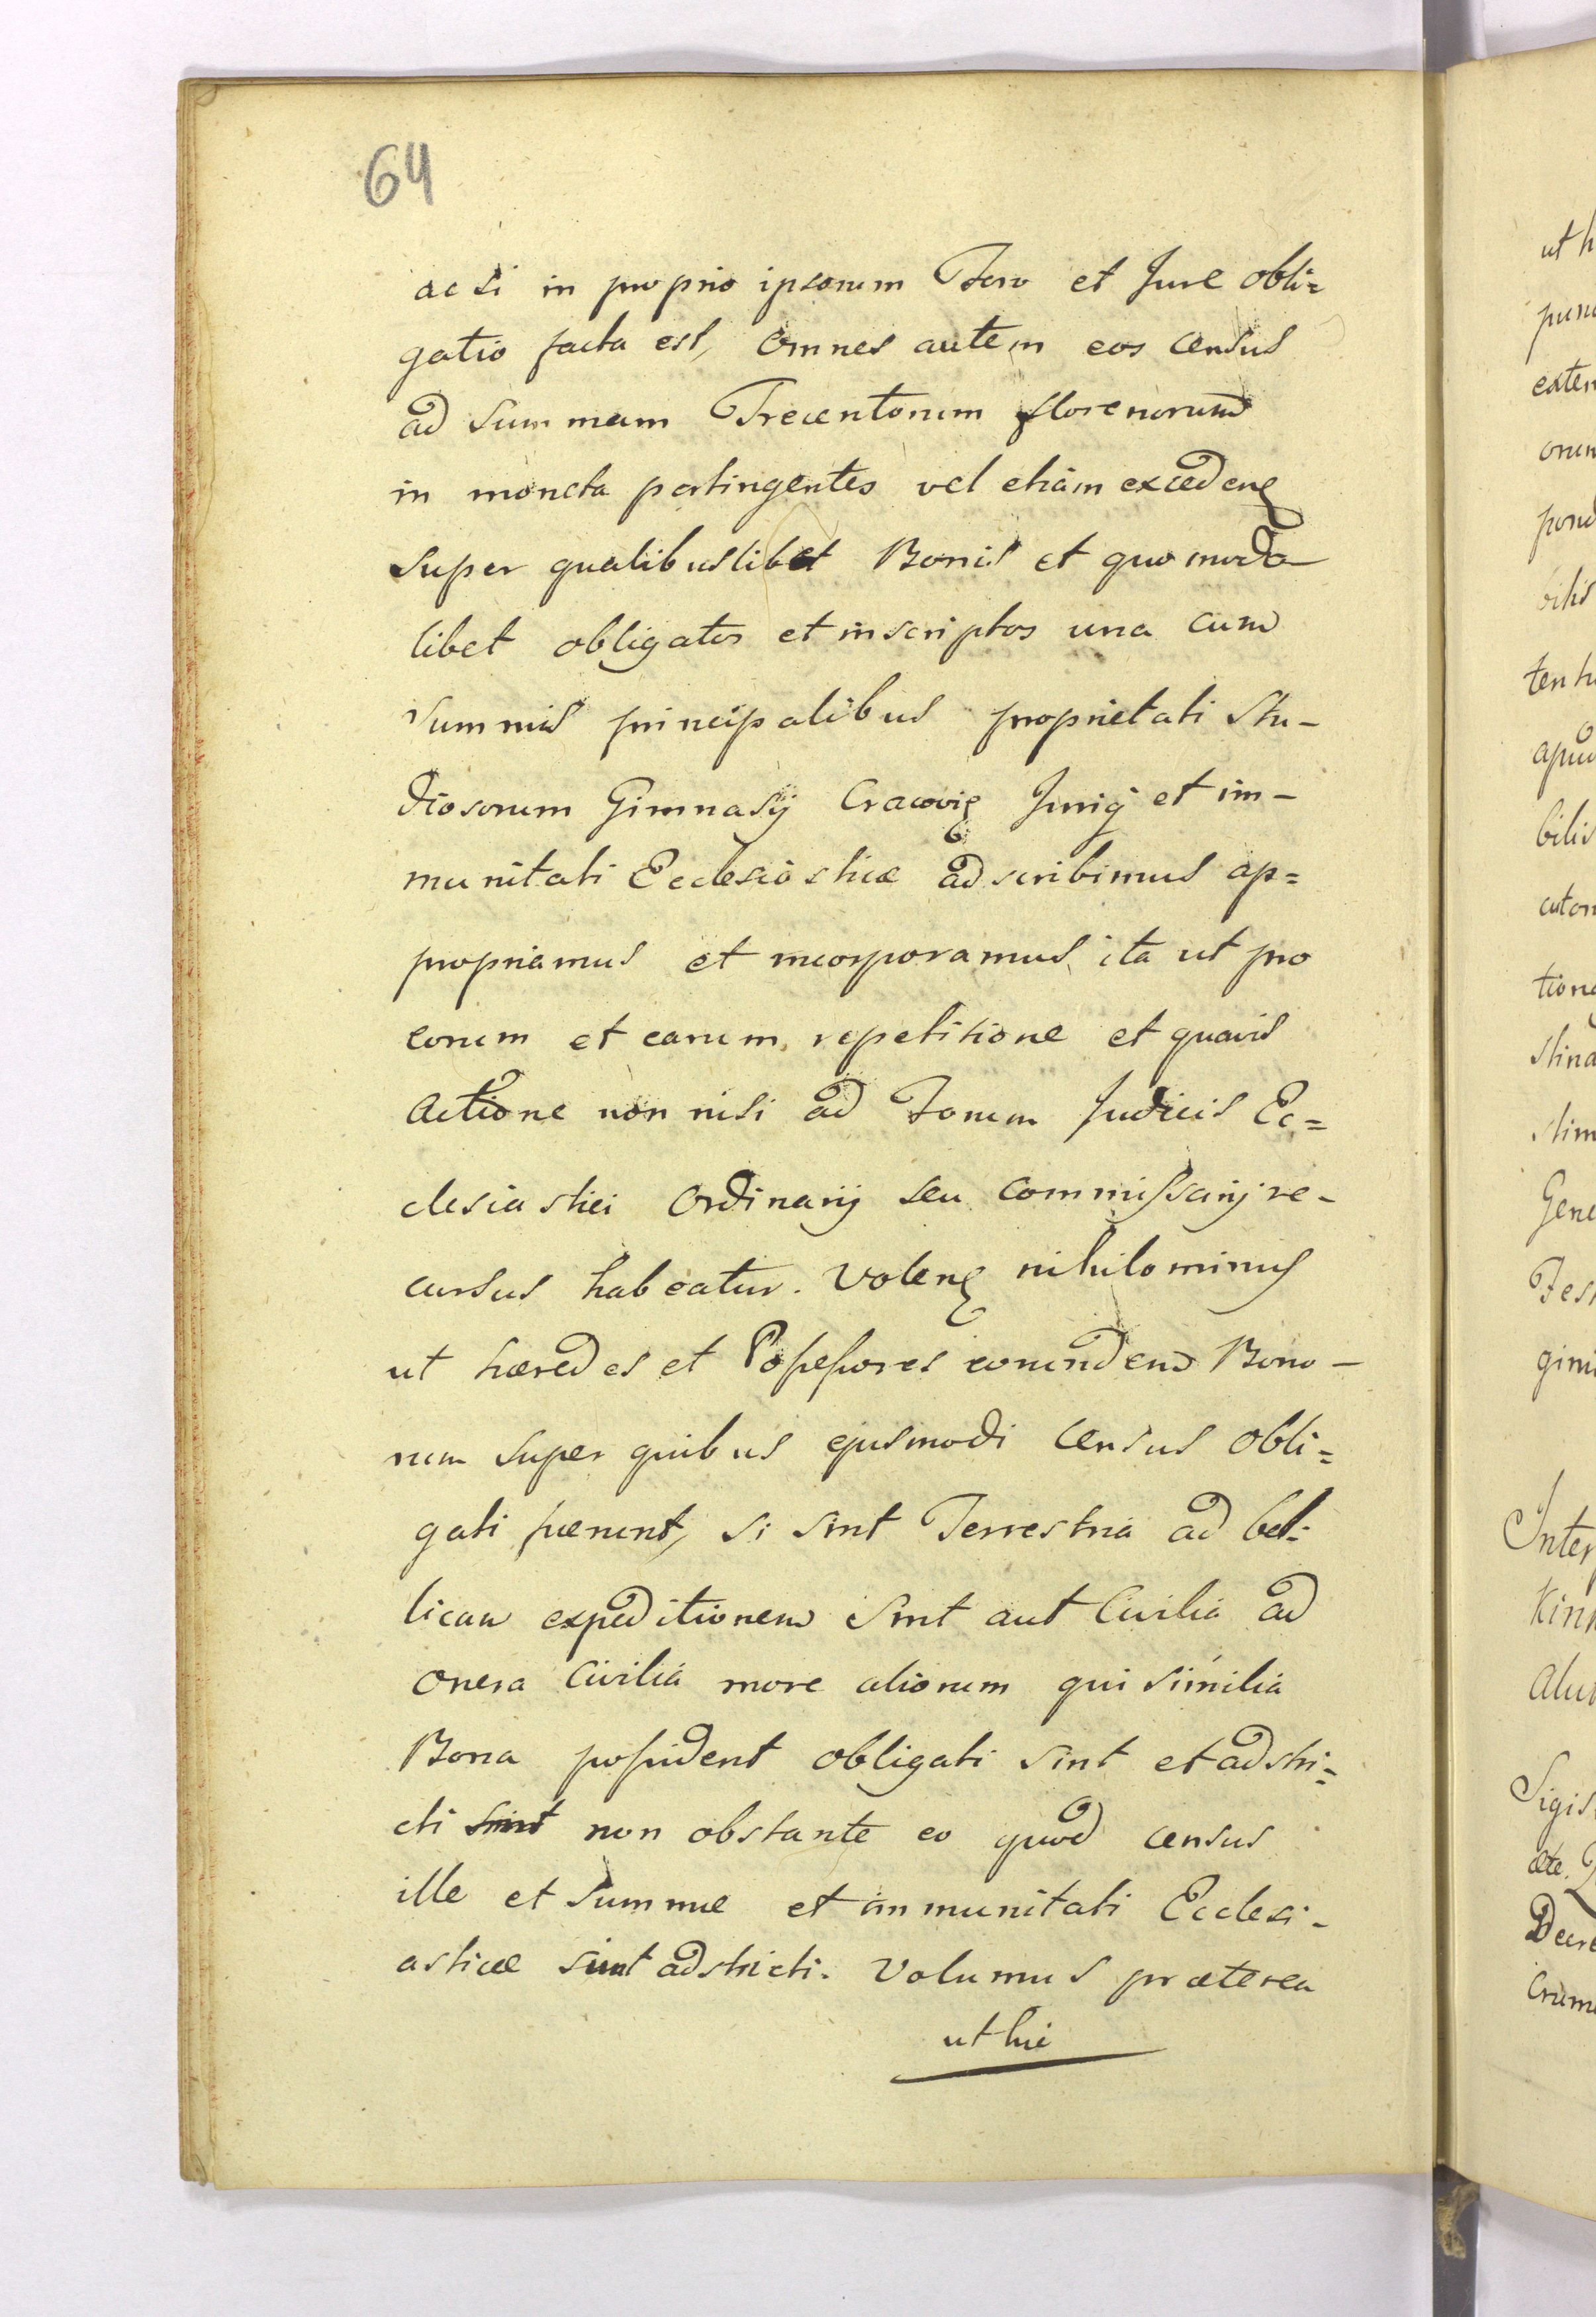 64
ac si in proprio ipsorum Foro et Jure obli=
gatio facta est, omnes autem eos census
ad summam Trecentorum florenorum
in moneta pertingentes vel etiam excedenę
super qualibuslibet Bonis et quomodo-
libet obligatos et inscriptos una cum
summis principalibus proprietati Stu-
diosorum Gimnasij Cracovię Jurię et im-
munitati Ecclesiasticæ adscribimus ap=
propriamus et incorporamus, ita ut pro
eorum et earum repetitione et quavis
actione non nisi ad Forum Judicis Ec=
clesiastici Ordinarij seu Commissarij re-
cursus habeatur. Volenę nihilominus
ut hæredes et Possessores eorundem Bono-
rum super quibus ejusmodi census obli=
gati fuerint, si sint Terrestria ad bel-
licam expeditionem sint aut Civilia ad
onera Civilia more aliorum qui similia
Bona possident obligati sint et adstri=
cti sint non obstante eo quod census
ille et summæ et immunitati Ecclesi-
asticæ sint adstricti. Volumus præterea
ut hi
ut h
bilis
apud
bilis
Gene
Inter
Kin
Sigis